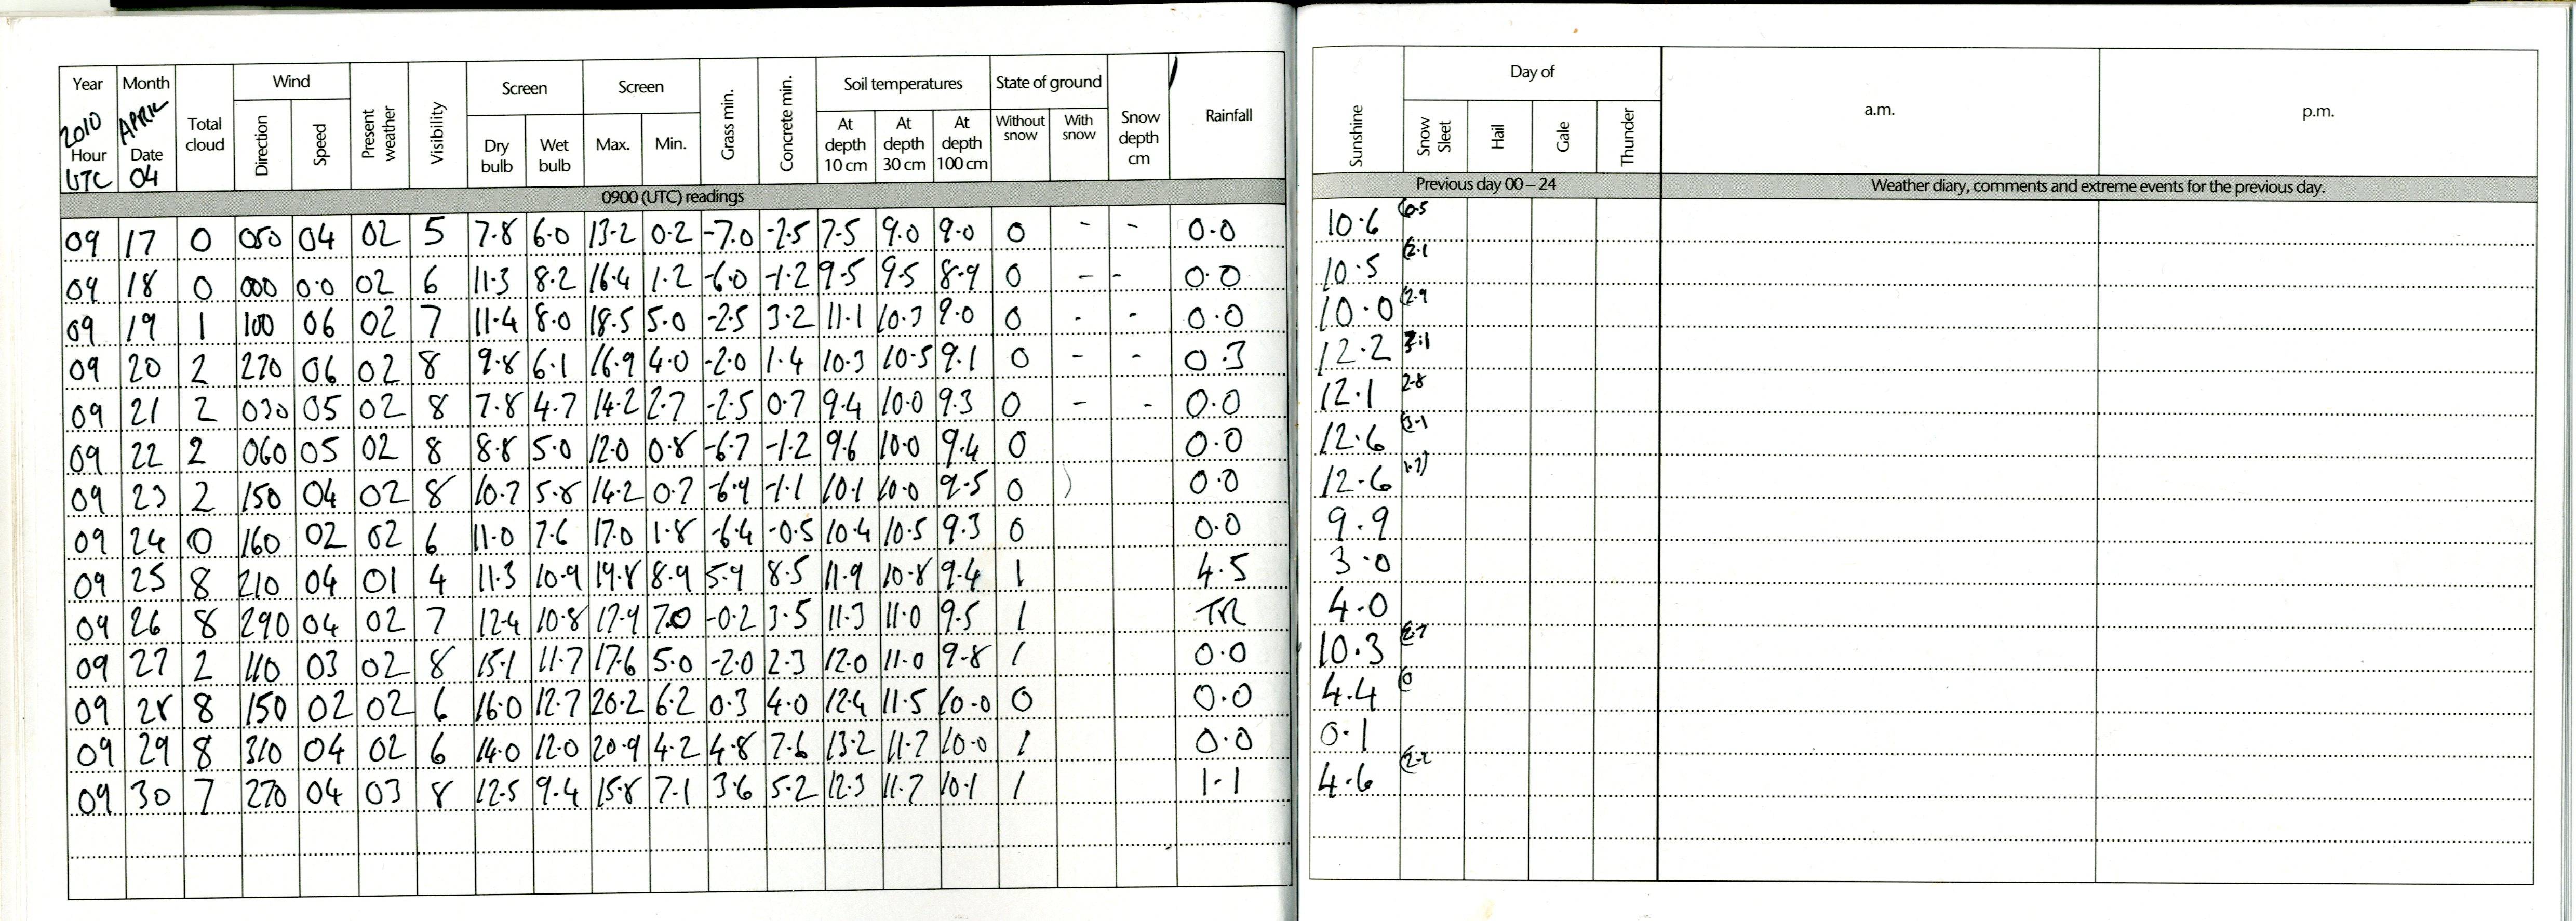 Year Month Total cloud Wind Direction Speed Present weather Visibility Screen Dry bulb Wet bulb Screen Max. Min. Grass min. Concrete min. Soil temperatures At depth 10 cm At depth 30 cm At depth 100 cm State of ground Without snow With snow Snow depth cm Rainfall Sunshine Day of Snow Sleet Hail Gale Thunder a.m. p.m.
2010 APRIL
Hour Date
UTC 04
0900 (UTC) readings Previous day 00 – 24 Weather diary, comments and extreme events for the previous day.
09 17 0 050 04 02 5 7.8 6.0 13.2 0.2 -7.0 -2.5 7.5 9.0 9.0 0 - - 0.0 10.6
09 18 0 000 0.0 02 6 11.3 8.2 16.4 1.2 -6.0 -1.2 9.5 9.5 8.9 0 - - 0.0 10.5 (2.1
09 19 1 100 06 02 7 11.4 8.0 18.5 5.0 -2.5 3.2 11.1 10.3 9.0 0 - - 0.0 10.0 (2.9
09 20 2 270 06 02 8 9.8 6.1 16.9 4.0 -2.0 1.4 10.3 10.5 9.1 0 - - 0.3 12.2
09 21 2 030 05 02 8 7.8 4.7 14.2 2.7 -2.5 0.7 9.4 10.0 9.3 0 - - 0.0 12.1 2.8
09 22 2 060 05 02 8 8.8 5.0 12.0 0.8 -6.7 -1.2 9.6 10.0 9.4 0 0.0 12.6 (3.1
09 23 2 150 04 02 8 10.7 5.8 14.2 0.7 -6.9 -1.1 10.1 10.0 9.5 0 0.0 12.6
09 24 0 160 02 02 6 11.0 7.6 17.0 1.8 -6.4 -0.5 10.4 10.5 9.3 0 0.0 9.9
09 25 8 210 04 01 4 11.3 10.9 19.8 8.9 5.9 8.5 11.9 10.8 9.4 1 4.5 3.0
09 26 8 290 04 02 7 12.4 10.8 17.9 7.0 -0.2 3.5 11.3 11.0 9.5 1 TR 4.0
09 27 2 110 03 02 8 15.1 11.7 17.6 5.0 -2.0 2.3 12.0 11.0 9.8 1 0.0 10.3
09 28 8 150 02 02 6 16.0 12.7 20.2 6.2 0.3 4.0 12.4 11.5 10.0 0 0.0 4.4
09 29 8 310 04 02 6 14.0 12.0 20.9 4.2 4.8 7.6 13.2 11.7 10.0 1 0.0 0.1
09 30 7 270 04 03 8 12.5 9.4 15.8 7.1 3.6 5.2 12.3 11.7 10.1 1 1.1 4.6